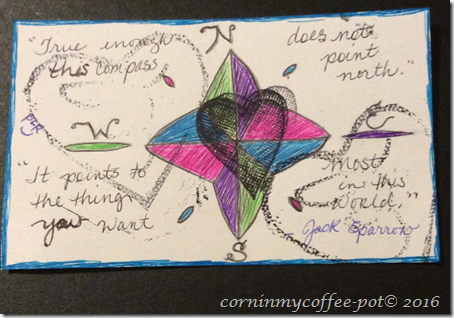 N
"True enough
this compass
does not
point
north."
W
E
"It points to
the thing
you want
most
in this
world."
Jack Sparrow
S
corninmycoffee-pot© 2016